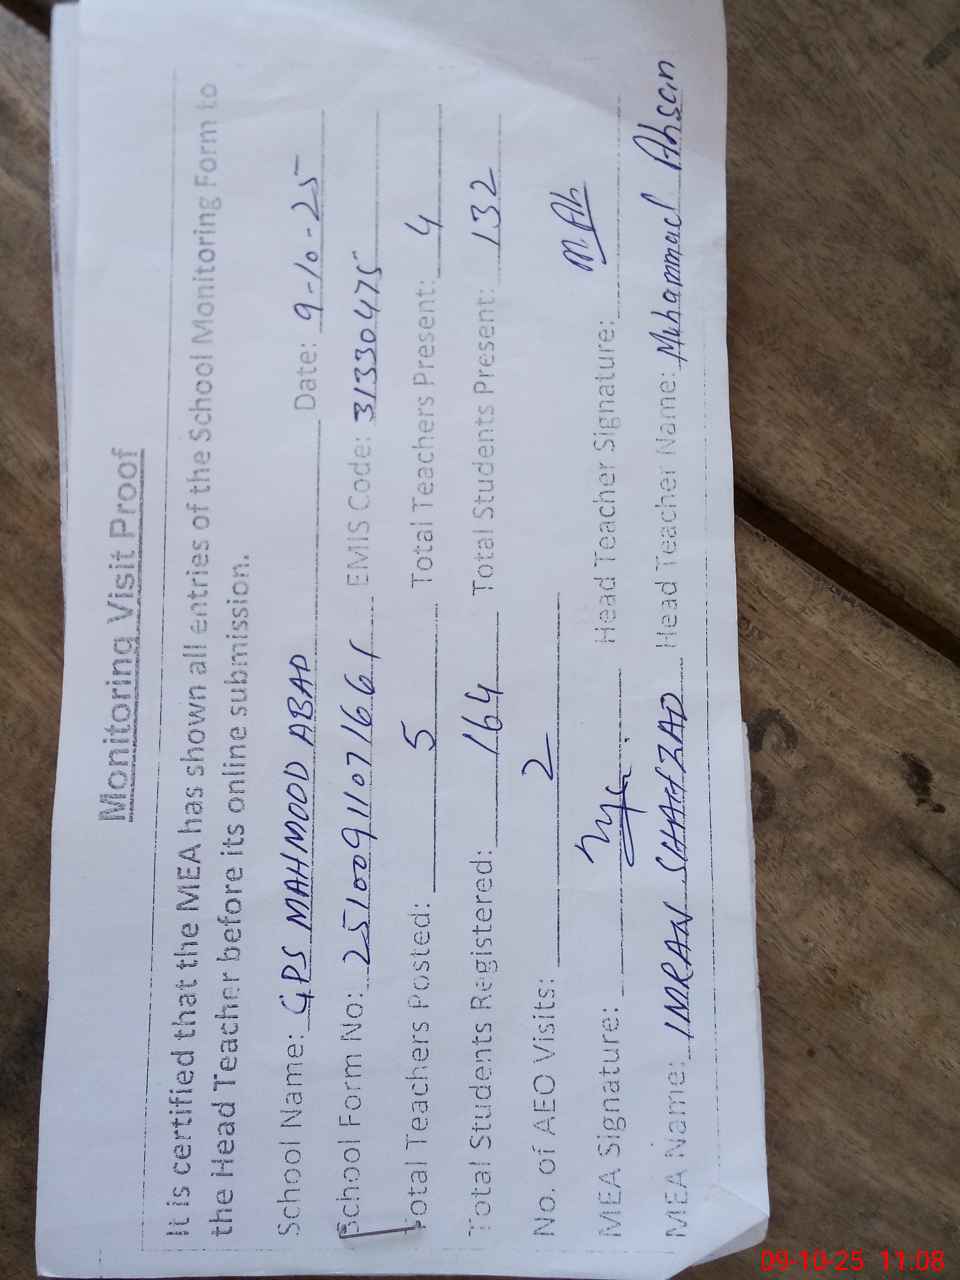 Monitoring Visit Proof
It is certified that the MEA has shown all entries of the School Monitoring Form to
the Head Teacher before its online submission.
School Name: GPS MAHMOOD ABAD Date: 9-10-25
School Form No: 251009110716661 EMIS Code: 31330475
Total Teachers Posted: 5 Total Teachers Present: 4
Total Students Registered: 164 Total Students Present: 132
No. of AEO Visits: 2
MEA Signature: Head Teacher Signature: M.Ah
MEA Name: IMRAN SHAHZAD Head Teacher Name: Muhammad Ahsan
09-10-25 11:08